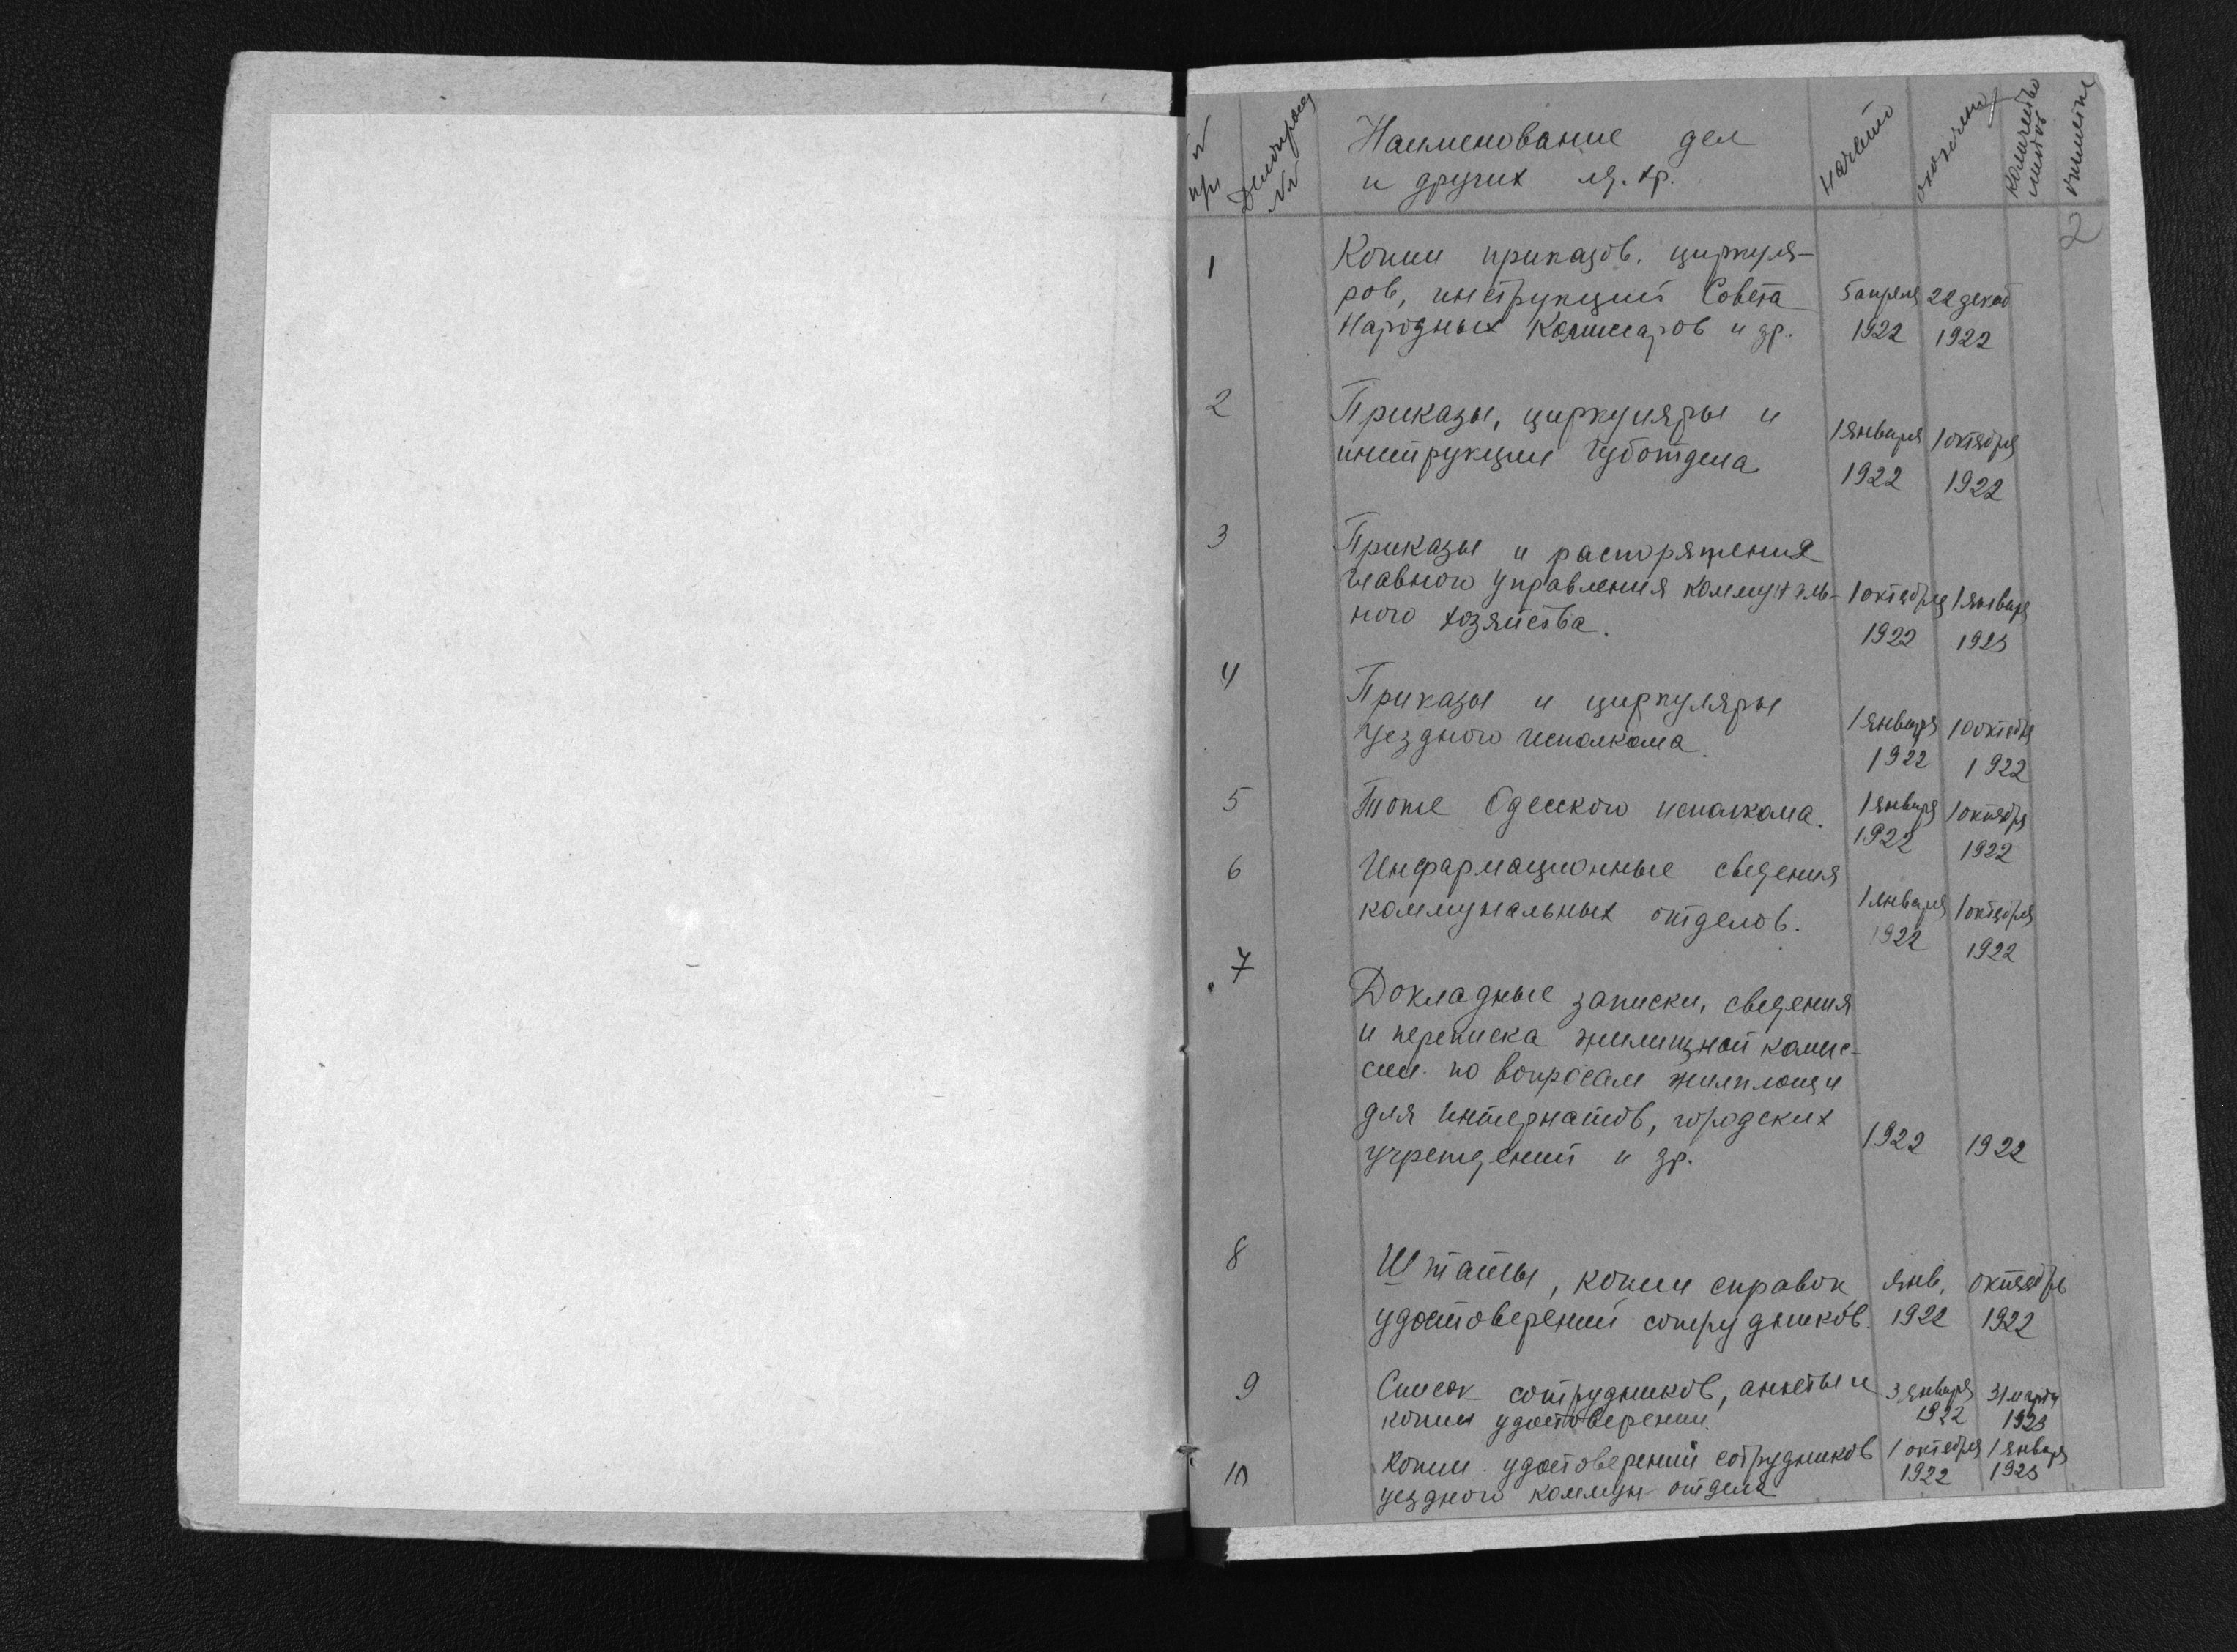 № п/п
Делопроизв №№
Наименование дел
и других ед. хр.
начато
окончено
количество листов
2
1
Копии приказов, циркуля-
ров, инструкций Совета
Народных Комиссаров и др.
5 апреля 1922
22 декаб 1922
2
Приказы, циркуляры и
инструкции Губотдела
1 января 1922
1 октября 1922
3
Приказы и распоряжения
главного управления коммуналь-
ного хозяйства.
1 октября 1922
1 января 1923
4
Приказы и циркуляры
уездного исполкома.
1 января 1922
10 октября 1922
5
Тоже Одесского исполкома.
1 января 1922
1 октября 1922
6
Информационные сведения
коммунальных отделов.
1 января 1922
1 октября 1922
7
Докладные записки, сведения
и переписка жилищной комис-
сии по вопросам жилплощади
для интернатов, городских
учреждений и др.
1922
1922
8
Штаты, копии справок,
удостоверений сотрудников.
янв. 1922
октябрь 1922
9
Список сотрудников, анкеты и
копии удостоверений.
3 января 1922
31 марта 1923
10
Копии удостоверений сотрудников
уездного коммун отдела
1 октября 1922
1 января 1923